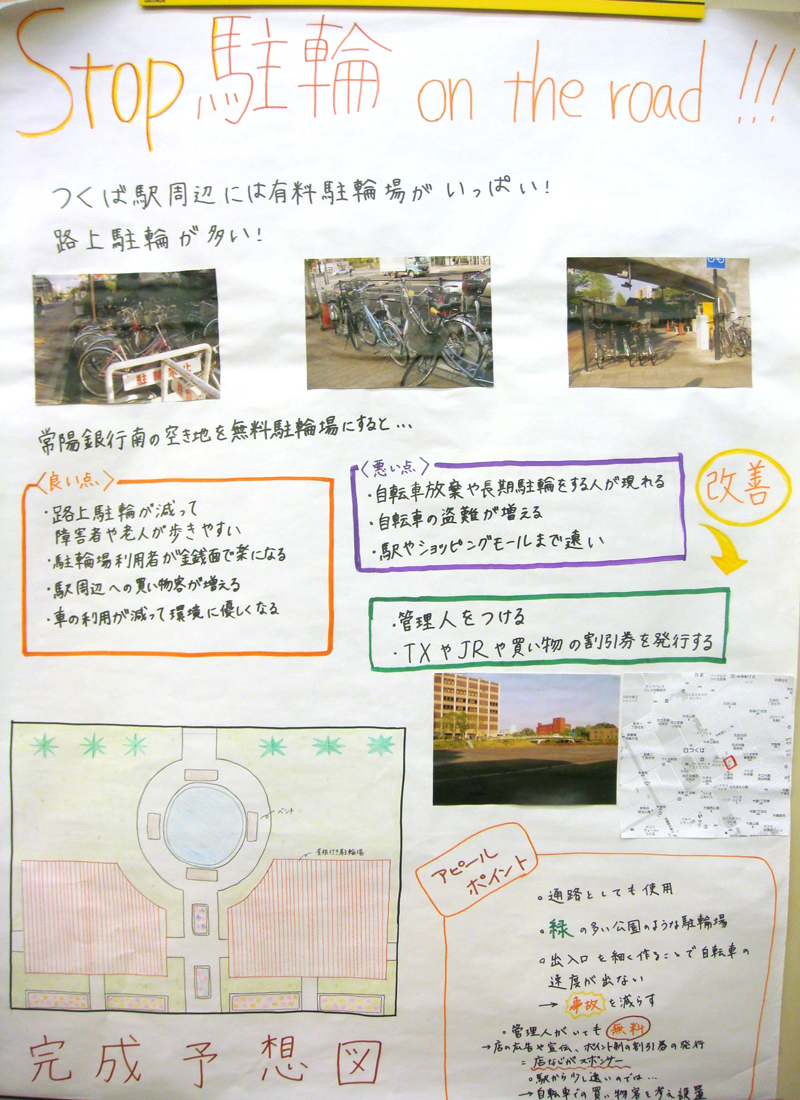 Stop 駐輪 on the road !!!
つくば駅周辺には有料駐輪場がいっぱい!
路上駐輪が多い!
常陽銀行南の空き地を無料駐輪場にすると…
〈良い点〉
・路上駐輪が減って
障害者や老人が歩きやすい
・駐輪場利用者が金銭面で楽になる
・駅周辺への買い物客が増える
・車の利用が減って環境に優しくなる
〈悪い点〉
・自転車放棄や長期駐輪をする人が現れる
・自転車の盗難が増える
・駅やショッピングモールまで遠い
改善
・管理人をつける
・TXやJRや買い物の割引券を発行する
ベンチ
屋根付き駐輪場
完成予想図
アピール
ポイント
・通路としても使用
・緑の多い公園のような駐輪場
・出入口を細く作ることで自転車の
速度が出ない
→事故を減らす
・管理人がいても無料
→店の広告や宣伝、ポイント制の割引券の発行
=店などがスポンサー
・駅から少し遠いのでは…
→自転車での買い物客を考え設置